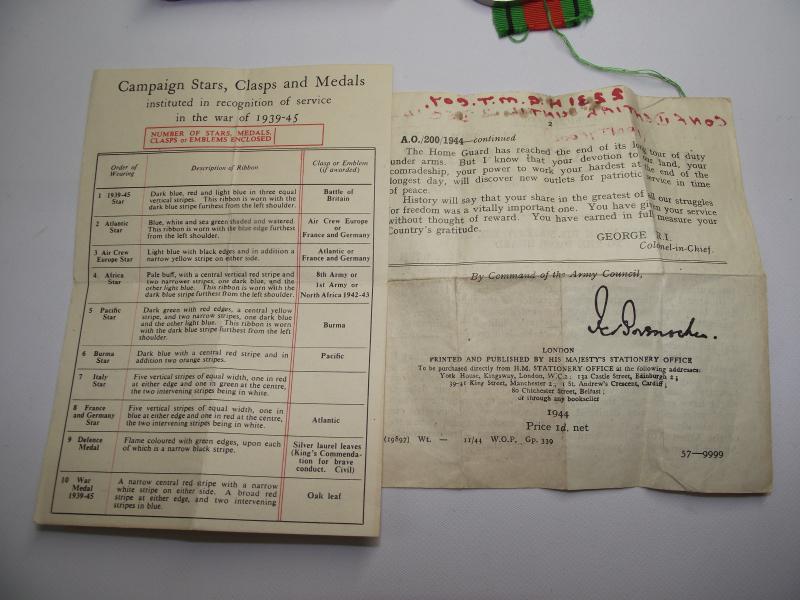 Campaign Stars, Clasps and Medals
instituted in recognition of service
in the war of 1939-45
NUMBER OF STARS, MEDALS,
CLASPS or EMBLEMS ENCLOSED
Order of
Wearing
Description of Ribbon
Clasp or Emblem
(if awarded)
1 1939-45
Star
Dark blue, red and light blue in three equal
vertical stripes. This ribbon is worn with the
dark blue stripe furthest from the left shoulder.
Battle of
Britain
2 Atlantic
Star
Blue, white and sea green shaded and watered.
This ribbon is worn with the blue edge furthest
from the left shoulder.
Air Crew Europe
or
France and Germany
3 Air Crew
Europe Star
Light blue with black edges and in addition a
narrow yellow stripe on either side.
Atlantic or
France and Germany
4 Africa
Star
Pale buff, with a central vertical red stripe and
two narrower stripes, one dark blue, and the
other light blue. This ribbon is worn with the
dark blue stripe furthest from the left shoulder.
8th Army or
1st Army or
North Africa 1942-43
5 Pacific
Star
Dark green with red edges, a central yellow
stripe, and two narrow stripes, one dark blue
and the other light blue. This ribbon is worn
with the dark blue stripe furthest from the left
shoulder.
Burma
6 Burma
Star
Dark blue with a central red stripe and in
addition two orange stripes.
Pacific
7 Italy
Star
Five vertical stripes of equal width, one in red
at either edge and one in green at the centre,
the two intervening stripes being in white.
8 France
and Germany
Star
Five vertical stripes of equal width, one in
blue at either edge and one in red at the centre,
the two intervening stripes being in white.
Atlantic
9 Defence
Medal
Flame coloured with green edges, upon each
of which is a narrow black stripe.
Silver laurel leaves
(King's Commenda-
tion for brave
conduct. Civil)
10 War
Medal
1939-45
A narrow central red stripe with a narrow
white stripe on either side. A broad red
stripe at either edge, and two intervening
stripes in blue.
Oak leaf
2
A.O./200/1944—continued
The Home Guard has reached the end of its long tour of duty
under arms. But I know that your devotion to our land, your
comradeship, your power to work your hardest at the end of the
longest day, will discover new outlets for patriotic service in time
of peace.
History will say that your share in the greatest of all our struggles
for freedom was a vitally important one. You have given your service
without thought of reward. You have earned in full measure your
Country's gratitude.
GEORGE R.I.
Colonel-in-Chief.
By Command of the Army Council,
LONDON
PRINTED AND PUBLISHED BY HIS MAJESTY'S STATIONERY OFFICE
To be purchased directly from H.M. STATIONERY OFFICE at the following addresses:
York House, Kingsway, London, W.C.2; 13a Castle Street, Edinburgh 2;
39-41 King Street, Manchester 2; 1 St. Andrew's Crescent, Cardiff;
80 Chichester Street, Belfast;
or through any bookseller
1944
Price 1d. net
(19897) Wt. — 11/44 W.O.P. Gp. 339
57—9999